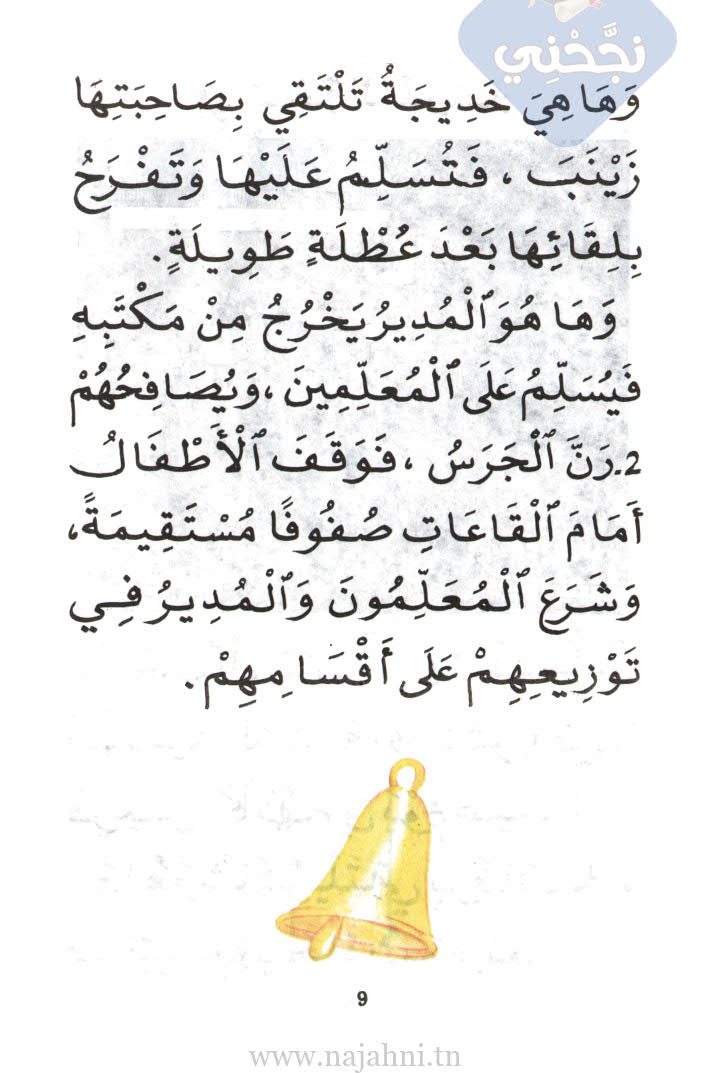 نجَّحْنِي
وَهَا هِيَ خَدِيجَةُ تَلْتَقِي بِصَاحِبَتِهَا
زَيْنَبَ ، فَتُسَلِّمُ عَلَيْهَا وَتَفْرَحُ
بِلِقَائِهَا بَعْدَ عُطْلَةٍ طَوِيلَةٍ .
وَهَا هُوَ ٱلْمُدِيرُ يَخْرُجُ مِنْ مَكْتَبِهِ
فَيُسَلِّمُ عَلَى ٱلْمُعَلِّمِينَ ، وَيُصَافِحُهُمْ
2ـ رَنَّ ٱلْجَرَسُ ، فَوَقَفَ ٱلْأَطْفَالُ
أَمَامَ ٱلْقَاعَاتِ صُفُوفًا مُسْتَقِيمَةً ،
وَشَرَعَ ٱلْمُعَلِّمُونَ وَٱلْمُدِيرُ فِي
تَوْزِيعِهِمْ عَلَى أَقْسَامِهِمْ .
9
www.najahni.tn